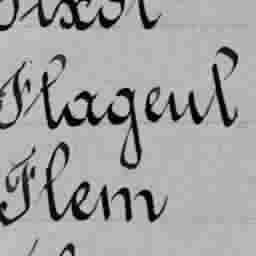 Flageul
Flem